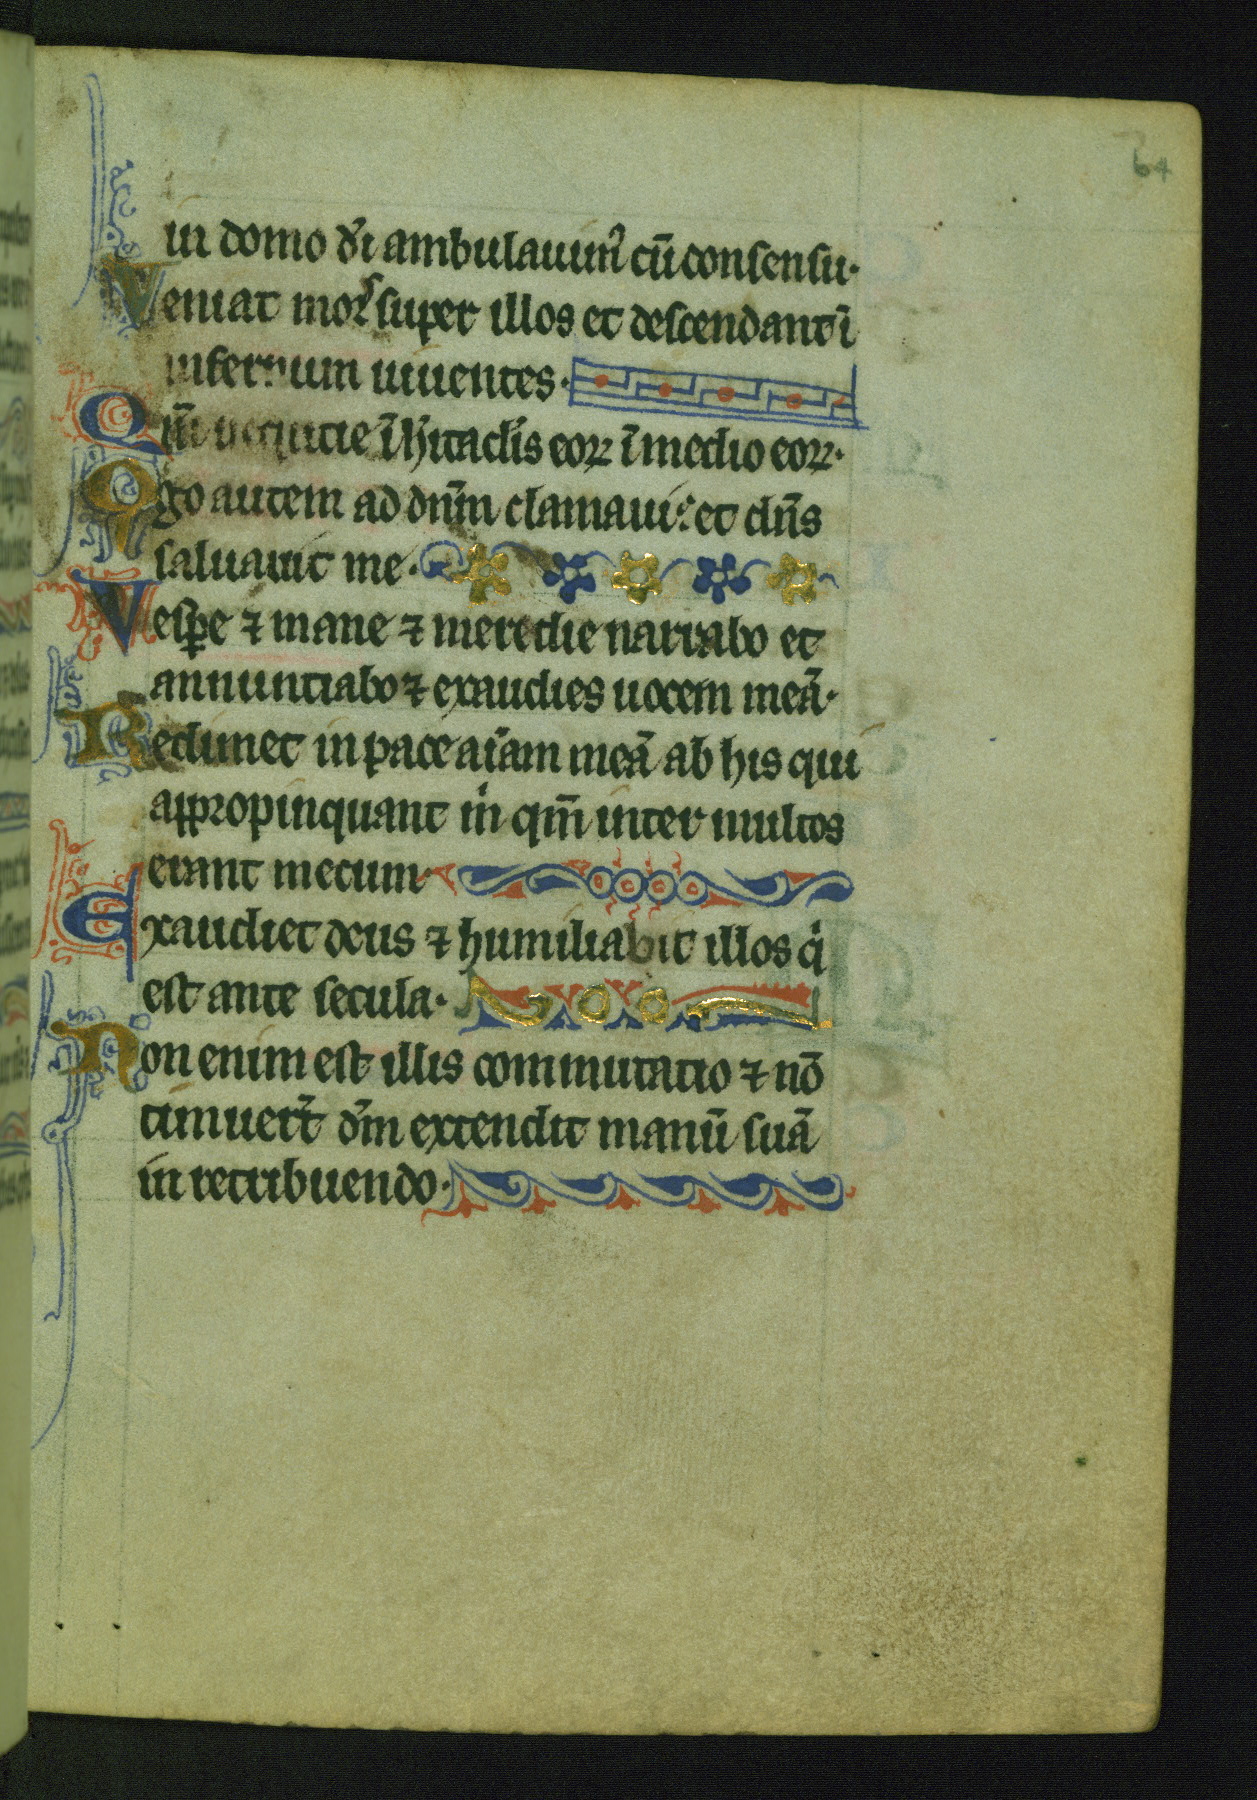 64
in domo dn̄i ambulauim᷒ cū consensu·
Veniat mors super illos et descendant ī
infernum uiuentes·
Qm̄ nequitie ī hītaclis eoꝝ ī medio eoꝝ·
Ego autem ad dn̄m clamaui: et dn̄s
saluauit me·
Vesꝑe ⁊ mane ⁊ meredie narrabo et
annuntiabo ⁊ exaudies uocem meā·
Redimet in pace aīam meā ab his qui
appropinquant m̍ qm̄ inter multos
erant mecum·
Exaudiet deus ⁊ humiliabit illos q̍
est ante secula·
Non enim est illis commutatio ⁊ nō
timuer̄t dm̄ extendit manū suā
in retribuendo·